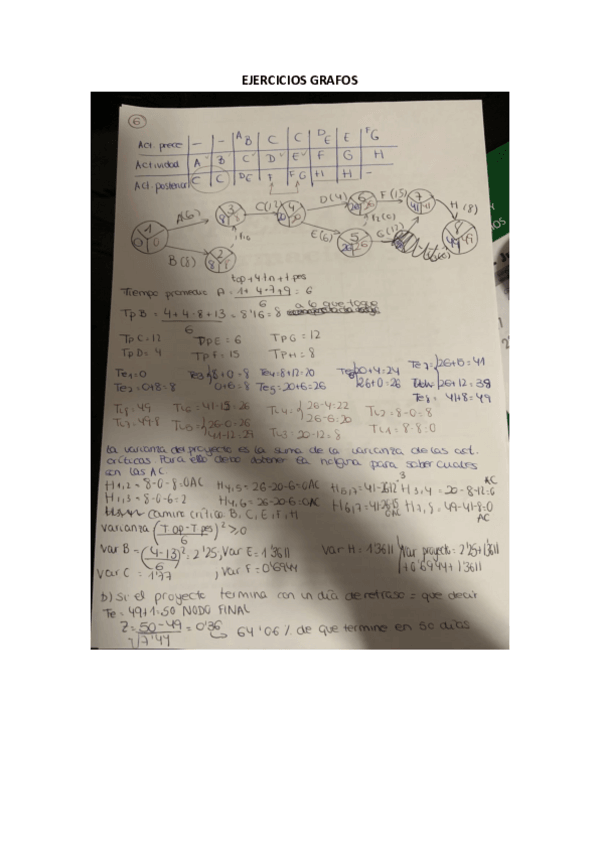 EJERCICIOS GRAFOS
6
Act. prece | - | - | A B | C | C | D E | E | F G
Actividad | A | B | C | D | E | F | G | H
Act. posterior | C | C | D E | F | F G | H | H | -
A(6) C(12) D(4) F(15) H(8)
B(8) E(6) F2(0) G(12)
top + 4tn + tpes
Tiempo promedio A = 1 + 4·7 + 9 = 6
6
a lo que toque
Tp B = 4 + 4·8 + 13 = 8'16 = 8
6
Tp C = 12 Tp E = 6 Tp G = 12
Tp D = 4 Tp F = 15 Tp H = 8
Te1 = 0 8+0=8 Te4 = 8+12=20 20+4=24 Te7 = 26+15=41
Te2 = 0+8=8 0+6=8 Te5 = 20+6=26 26+0=26 26+12=38
Te8 = 41+8=49
TL8 = 49 TL6 = 41-15=26 TL4 = 26-4=22 TL2 = 8-0=8
TL7 = 49-8 TL5 = 26-0=26 26-6=20 TL1 = 8-8=0
41-12=29 TL3 = 20-12=8
La varianza del proyecto es la suma de la varianza de las act.
críticas. Para ello debo obtener la holgura para saber cuales
son las AC
H1,2 = 8-0-8=0AC H4,5 = 26-20-6=0AC H3,4 = 20-8-12=0 AC
H1,3 = 8-0-6=2 H4,6 = 26-20-6=0AC H7,8 = 49-41-8=0
AC
camino crítico B, C, E, F, H
Varianza (Top - Tpes)² > 0
6
Var B = (4-13)² = 2'25, Var E = 1'3611 Var H = 1'3611 Var proyecto = 2'25+1'3611
6 +0'6944+1'3611
Var C = 1'77 , Var F = 0'6944
b) Si el proyecto termina con un día de retraso = que decir
Te = 49+1=50 NODO FINAL
Z = 50-49 = 0'36 → 64'06% de que termine en 50 días
√7'44